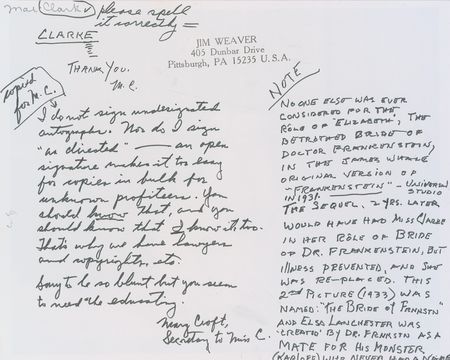 Mae Clark please spell
it correctly =
CLARKE
THANK YOU.
M.C.
JIM WEAVER
405 Dunbar Drive
Pittsburgh, PA 15235 U.S.A.
copied
for M.C.
I do not sign undesignated
autographs. Nor do I sign
"as directed" — an open
signature makes it too easy
for copies in bulk for
unknown profiteers. You
should know that, and you
should know that I know it too.
That's why we have lawyers
and copyrights, etc.
Sorry to be so blunt but you seem
to need the educating.
Mary Croft,
Secretary to Miss C.
NOTE
NO ONE ELSE WAS EVER
CONSIDERED FOR THE
RÔLE OF "ELIZABETH", THE
BETROTHED BRIDE OF
DOCTOR FRANKENSTEIN,
IN THE JAMES WHALE
ORIGINAL VERSION OF
"FRANKENSTEIN" - UNIVERSAL
STUDIO
IN 1931.
THE SEQUEL, 2 YRS. LATER
WOULD HAVE HAD MISS CLARKE
IN HER RÔLE OF BRIDE
OF DR. FRANKENSTEIN, BUT
ILLNESS PREVENTED, AND SHE
WAS RE-PLACED. THIS
2nd PICTURE (1933) WAS
NAMED: "THE BRIDE OF FRNKSTN
AND ELSA LANCHESTER WAS
'CREATED' BY DR. FRNKSTN AS A
MATE FOR HIS MONSTER
(KARLOFF) WHO NEVER HAD A NAME